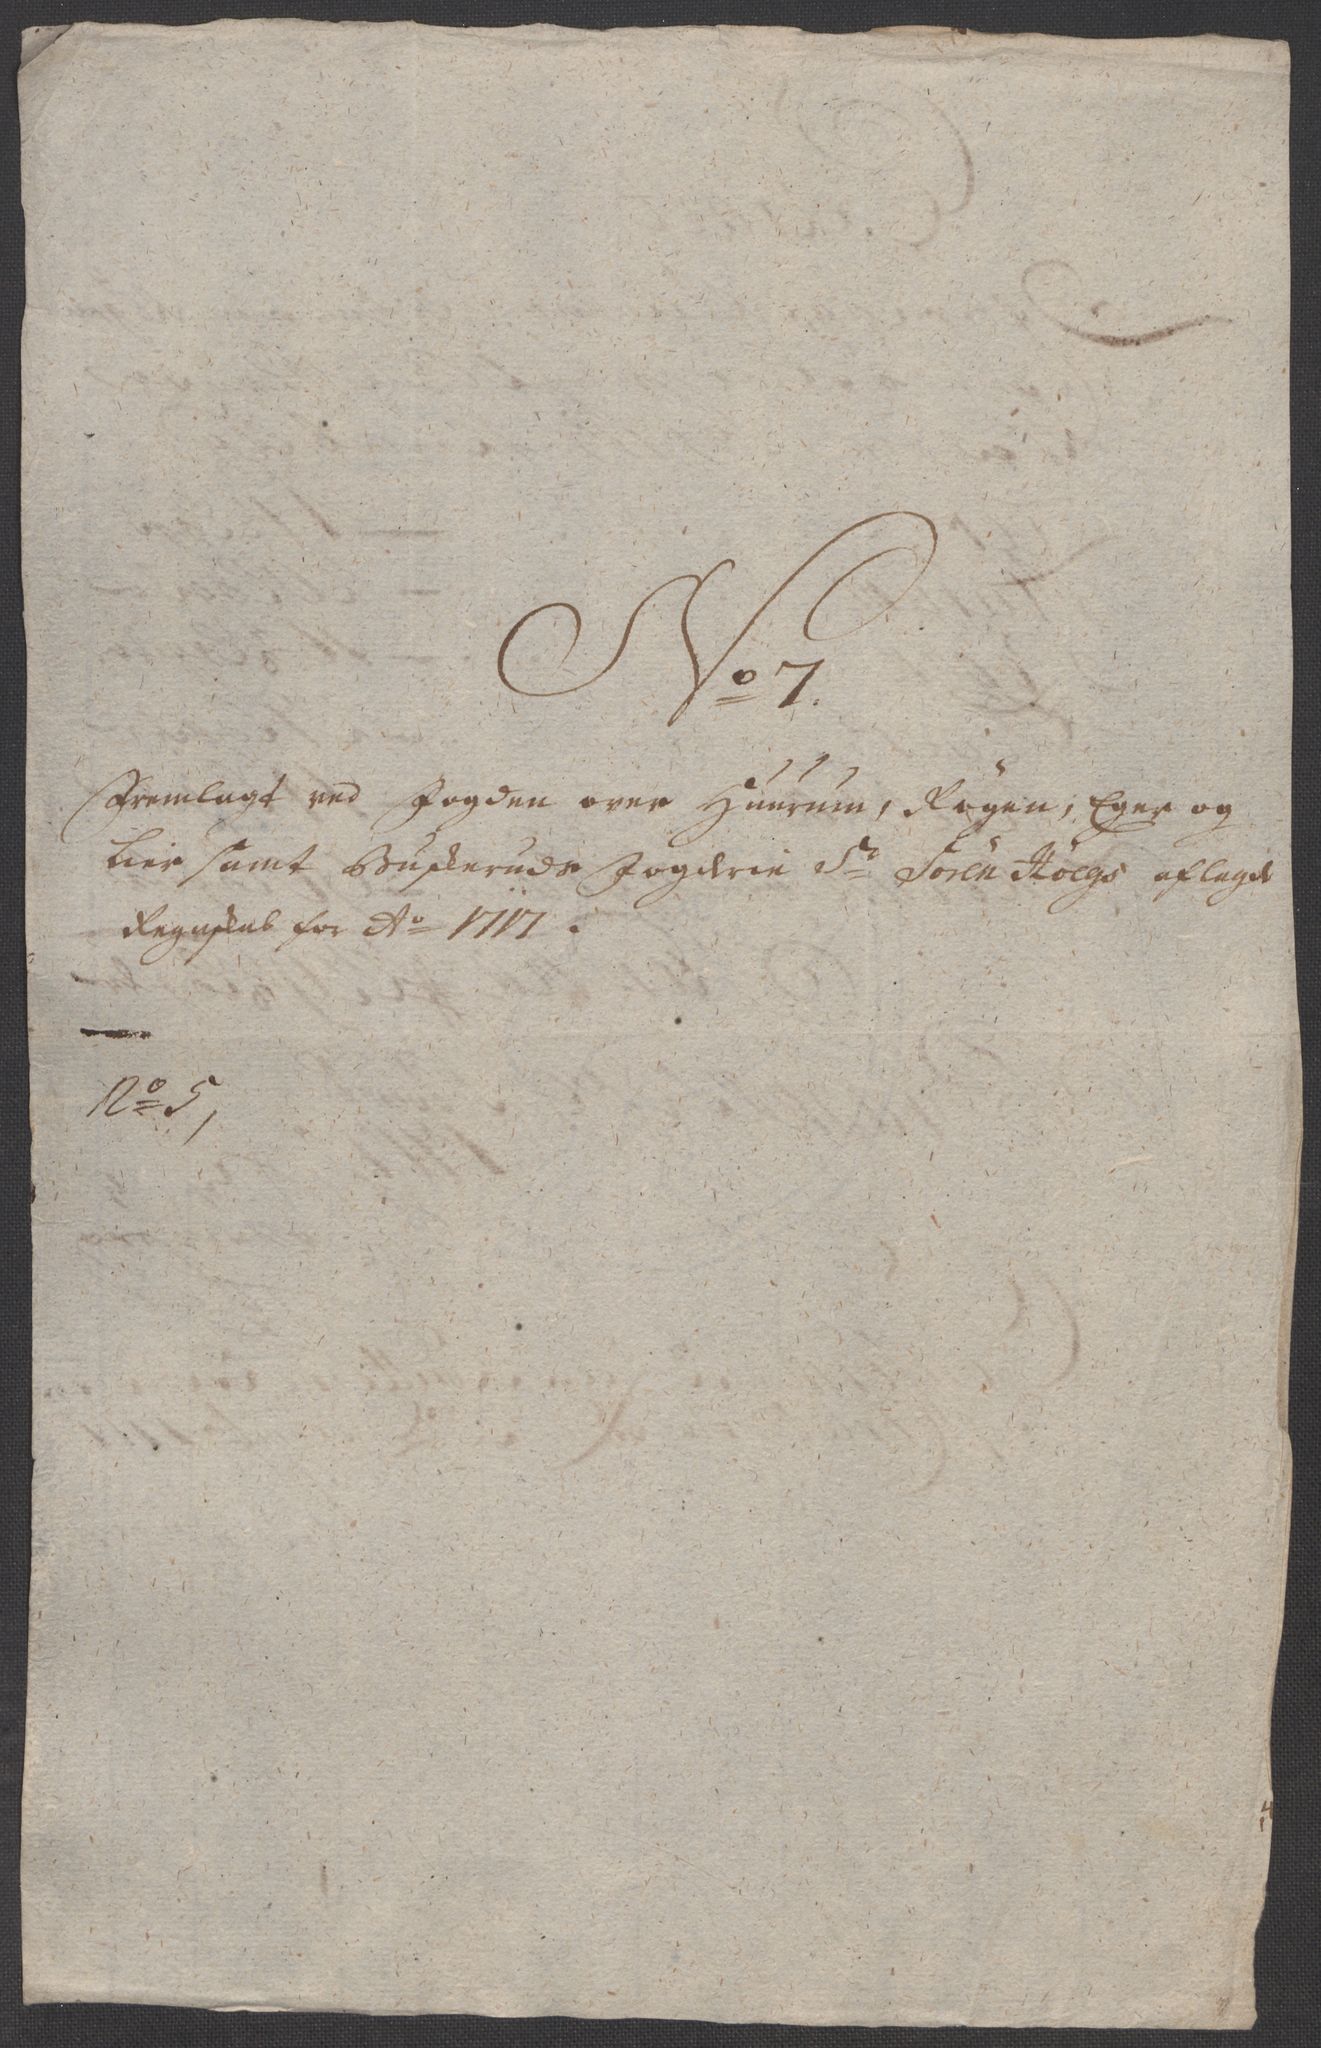 No 7.
Fremlagt ved Fogden over Huurum, Røgen, Eger og
Lier samt Buskeruds Fogderie Sr Søren Hølgs aflagde
Regnskab for Ao 1717.
No 5,